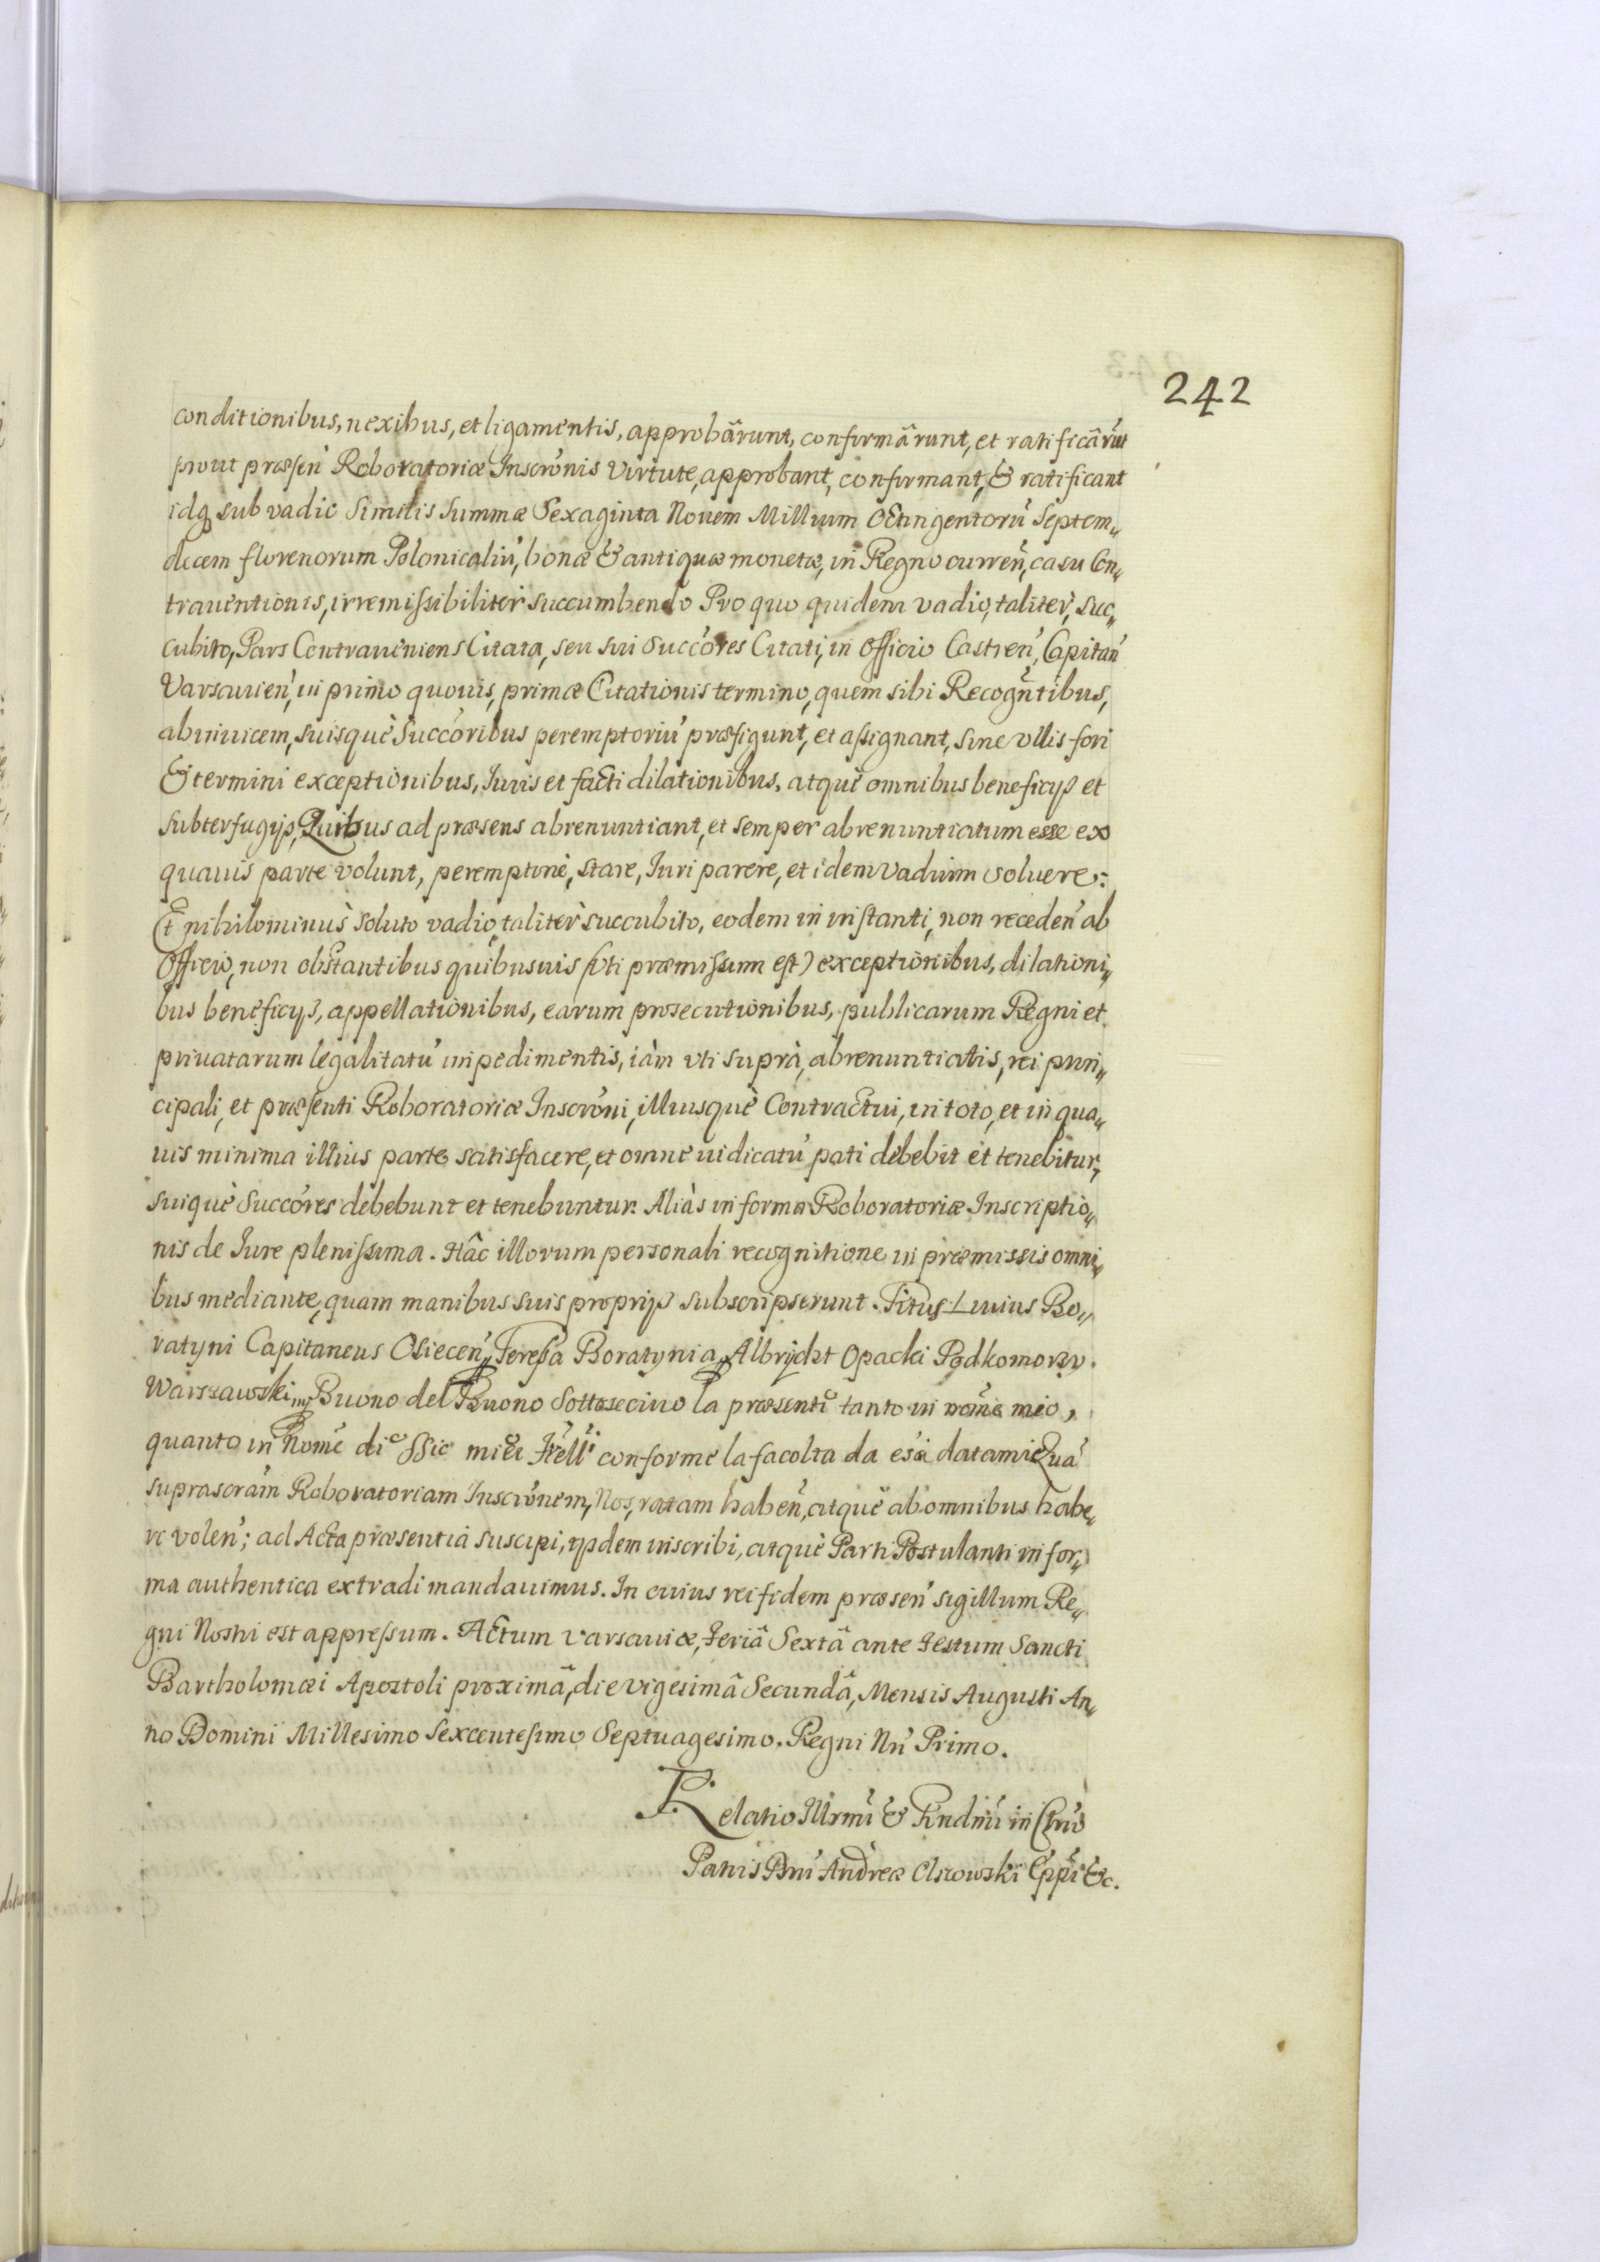 242
conditionibus, nexibus, et ligamentis, approbârunt, confirmârunt, et ratificârũt
prout præsen̄ Roboratoriæ Inscrōnis virtute, approbant, confirmant, & ratificant
idq sub vadio similis summæ Sexaginta Nouem Millium Octingentorū Septem„
decem florenorum Polonicaliū, bonæ & antiquæ monetæ, in Regno curren̄, casu Con„
trauentionis, irremissibiliter succumbendo Pro quo quidem vadio, taliter, suc„
cubito, Pars Contraueniens Citata, seu sui Succōres Citati, in Officio Castren̄, Capitan̄
Varsauien̄, in primo quouis, primæ Citationis termino, quem sibi Recogn̄tibus,
abinuicem, suisquè Succōribus peremptoriū præfigunt, et assignant, sine vllis fori
& termini exceptionibus, Iuris et facti dilationibus, atquè omnibus beneficijs et
subterfugijs, Quibus ad præsens abrenuntiant, et semper abrenuntiatum esse ex
quauis parte volunt, peremptoriè, stare, Iuri parere, et idem vadium soluere:
Et nihilominùs soluto vadio, talitèr succubito, eodem in instanti, non receden̄ ab
Officio, non obstantibus quibusuis (vti præmissum est) exceptionibus, dilationi„
bus beneficijs, appellationibus, earum prosecutionibus, publicarum Regni et
priuatarum legalitatū impedimentis, iàm vti suprà, abrenuntiatis, rei prin„
cipali, et præsenti Roboratoriæ Inscrōni, illiusquè Contractui, in toto, et in qua„
uis minima illius parte satisfacere, et omne iudicatū pati debebit et tenebitur,
suiquè Succōres debebunt et tenebuntur. Aliàs in forma Roboratoriæ Inscriptio„
nis de Iure plenissima. Hâc illorum personali recognitione in præmissis omni„
bus mediante, quam manibus suis proprijs subscripserunt. Titus Liuius Bo„
ratyni Capitaneus Osiecen̄, Teresa Boratynia, Albrycht Opacki Podkomorzy
Warszawski mp Buono del Buono Sottoscriuo la præsente tanto in nome mio,
quanto in Nome di SSic miei Frēlli conforme la facolta da essi datami Quā
suprascrām Roboratoriam Inscrōnem, Nos, ratam haben̄, atquè ab omnibus habe„
re volen̄; ad Acta præsentia suscipi, ijsdem inscribi, atquè Parti Postulanti in for„
ma authentica extradi mandauimus. In cuius rei fidem præsen̄ sigillum Re„
gni Nostri est appressum. Actum Varsauiæ, Feriâ Sextâ ante Festum Sancti
Bartholomæi Apostoli proximâ, die vigesimâ Secundâ, Mensis Augusti An„
no Domini Millesimo Sexcentesimo Septuagesimo. Regni Nrī Primo.
Relatio Illrmī & Rndmī in Chrō
Patris Dnī Andreæ Olszowski Eppī &c.